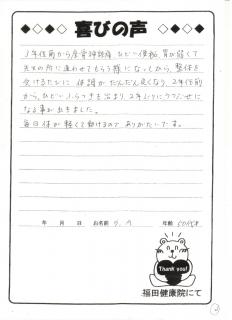 ◆◇◆◇ 喜びの声 ◇◆◇◆
3年位前から坐骨神経痛、ひどい便秘、胃が弱くて
先生の所に通わせてもらう様になってから、整体を
受けるたびに体調がだんだん良くなり、2年位前
から、ひどいふらつきも治まり、2年ぶりに
なる事が出来ました。
毎日体が軽くて動けるので ありがたいです。
年 月 日 お名前 年齢 50代
Thank you!
福田健康院にて